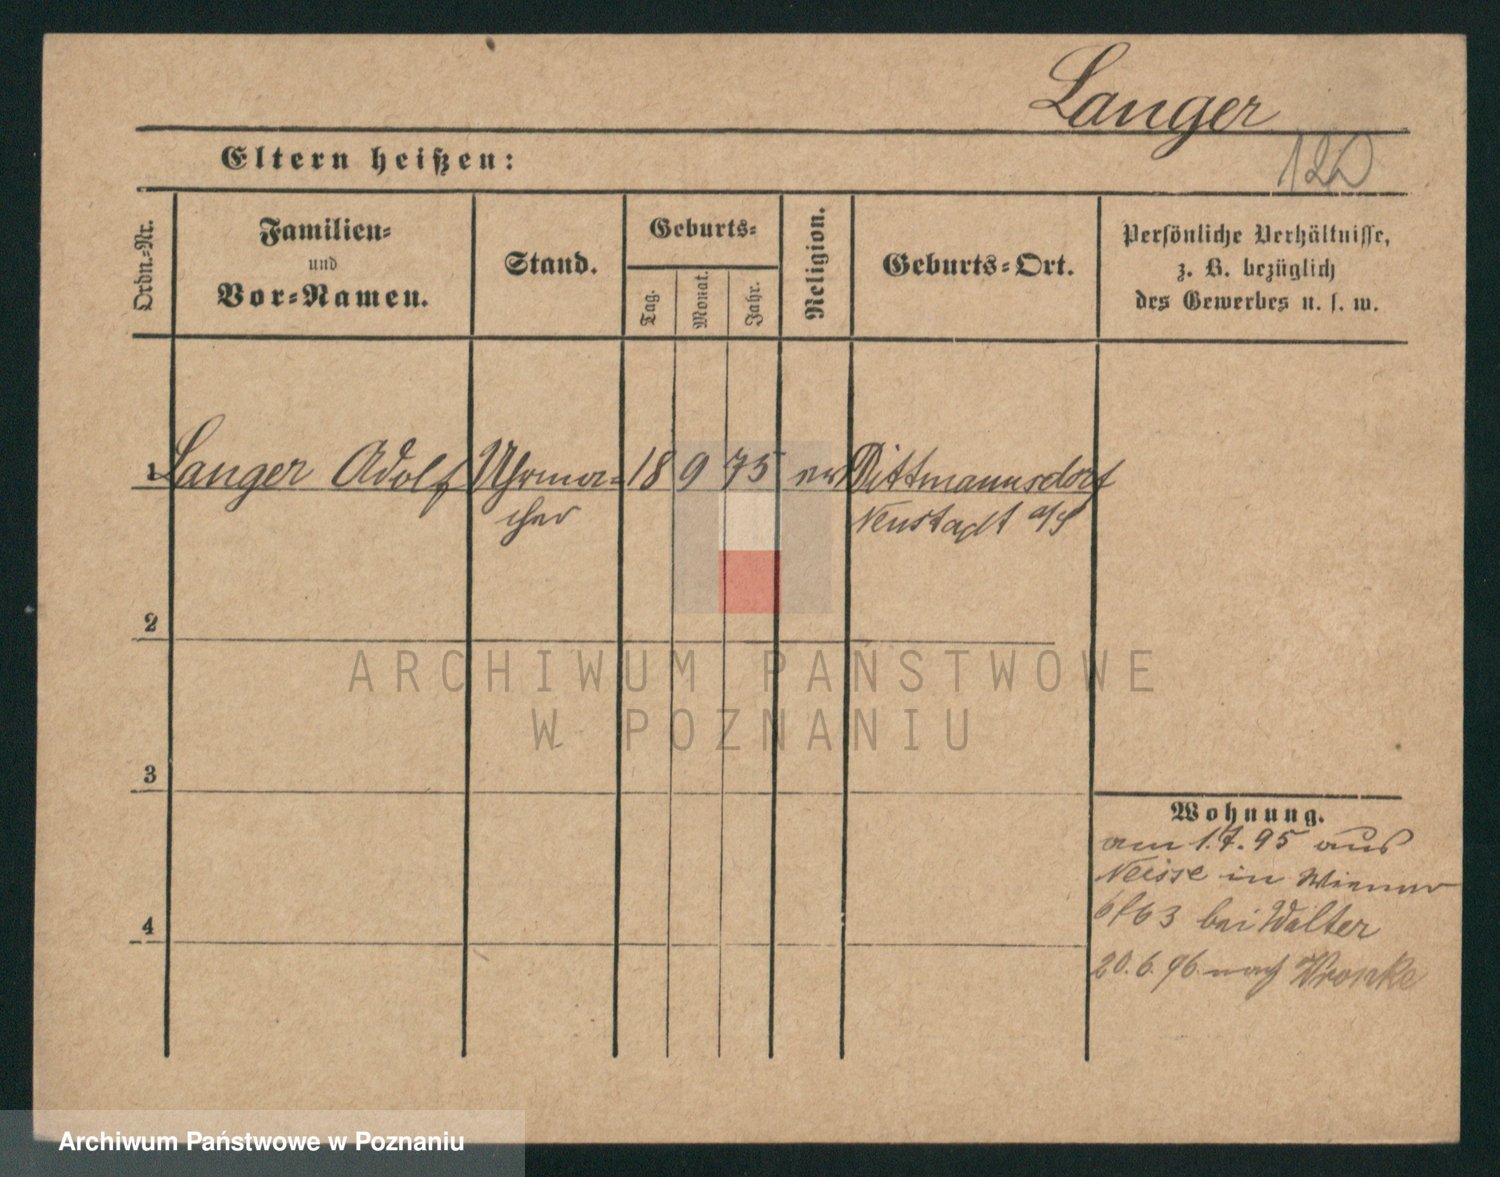 Langer
120
Eltern heißen:
Ordn.-Nr.
Familien-
und
Vor-Namen.
Stand.
Geburts-
Tag.
Monat.
Jahr.
Religion.
Geburts-Ort.
Persönliche Verhältnisse,
z. B. bezüglich
des Gewerbes u. s. w.
1 Langer Adolf Uhrma- 18 9 75 ev Dittmannsdorf
cher Neustadt o/S
2
3
4
Wohnung.
am 1.7.95 aus
Neisse in Wiener
bei Walter
20.6.96 nach Wronke
ARCHIWUM PAŃSTWOWE
W POZNANIU
Archiwum Państwowe w Poznaniu